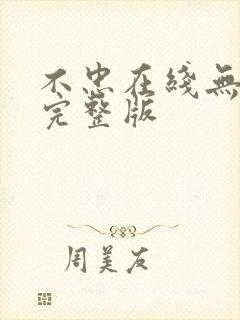 不忠在綫無
完整版
周美友